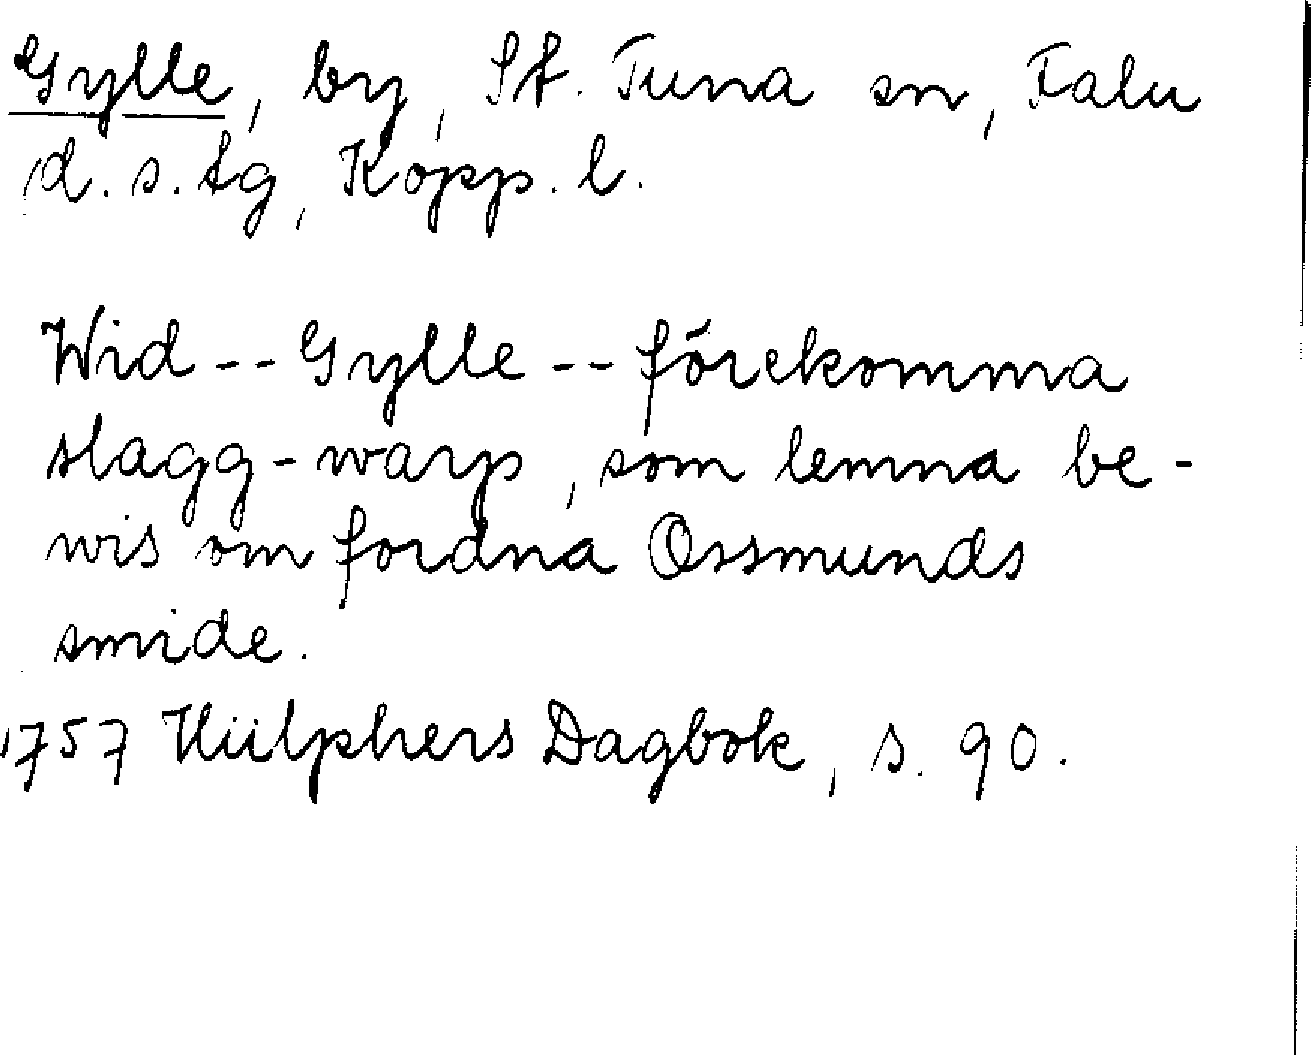 Gylle, by, St. Tuna sn, Falu
d. s. tg, Kopp. l.
Wid -- Gylle -- förekomma
slagg-warp, som lemna be-
wis om fordna Ossmunds
smide.
1757 Hülphers Dagbok, s. 90.